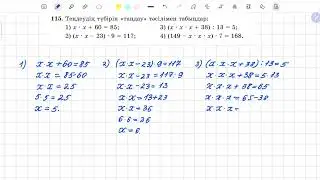 115. Теңдеудің түбірін «таңдау» тәсілімен табыңдар:
1) x · x + 60 = 85;
3) (x · x · x + 38) : 13 = 5;
2) (x · x − 23) · 9 = 117;
4) (149 − x · x · x) · 7 = 168.
1) x·x+60=85
x·x=85-60
x·x=25
5·5=25
x=5.
2) (x·x-23)·9=117
x·x-23=117:9
x·x-23=13
x·x=13+23
x·x=36
6·6=36
x=6
3) (x·x·x+38):13=5
x·x·x+38=5·13
x·x·x+38=65
x·x·x=65-38
x·x·x=